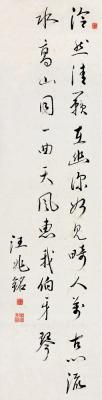 泠然清籟在幽深如見畸人萬古心流
水高山同一曲天風惠我伯牙琴
汪兆銘